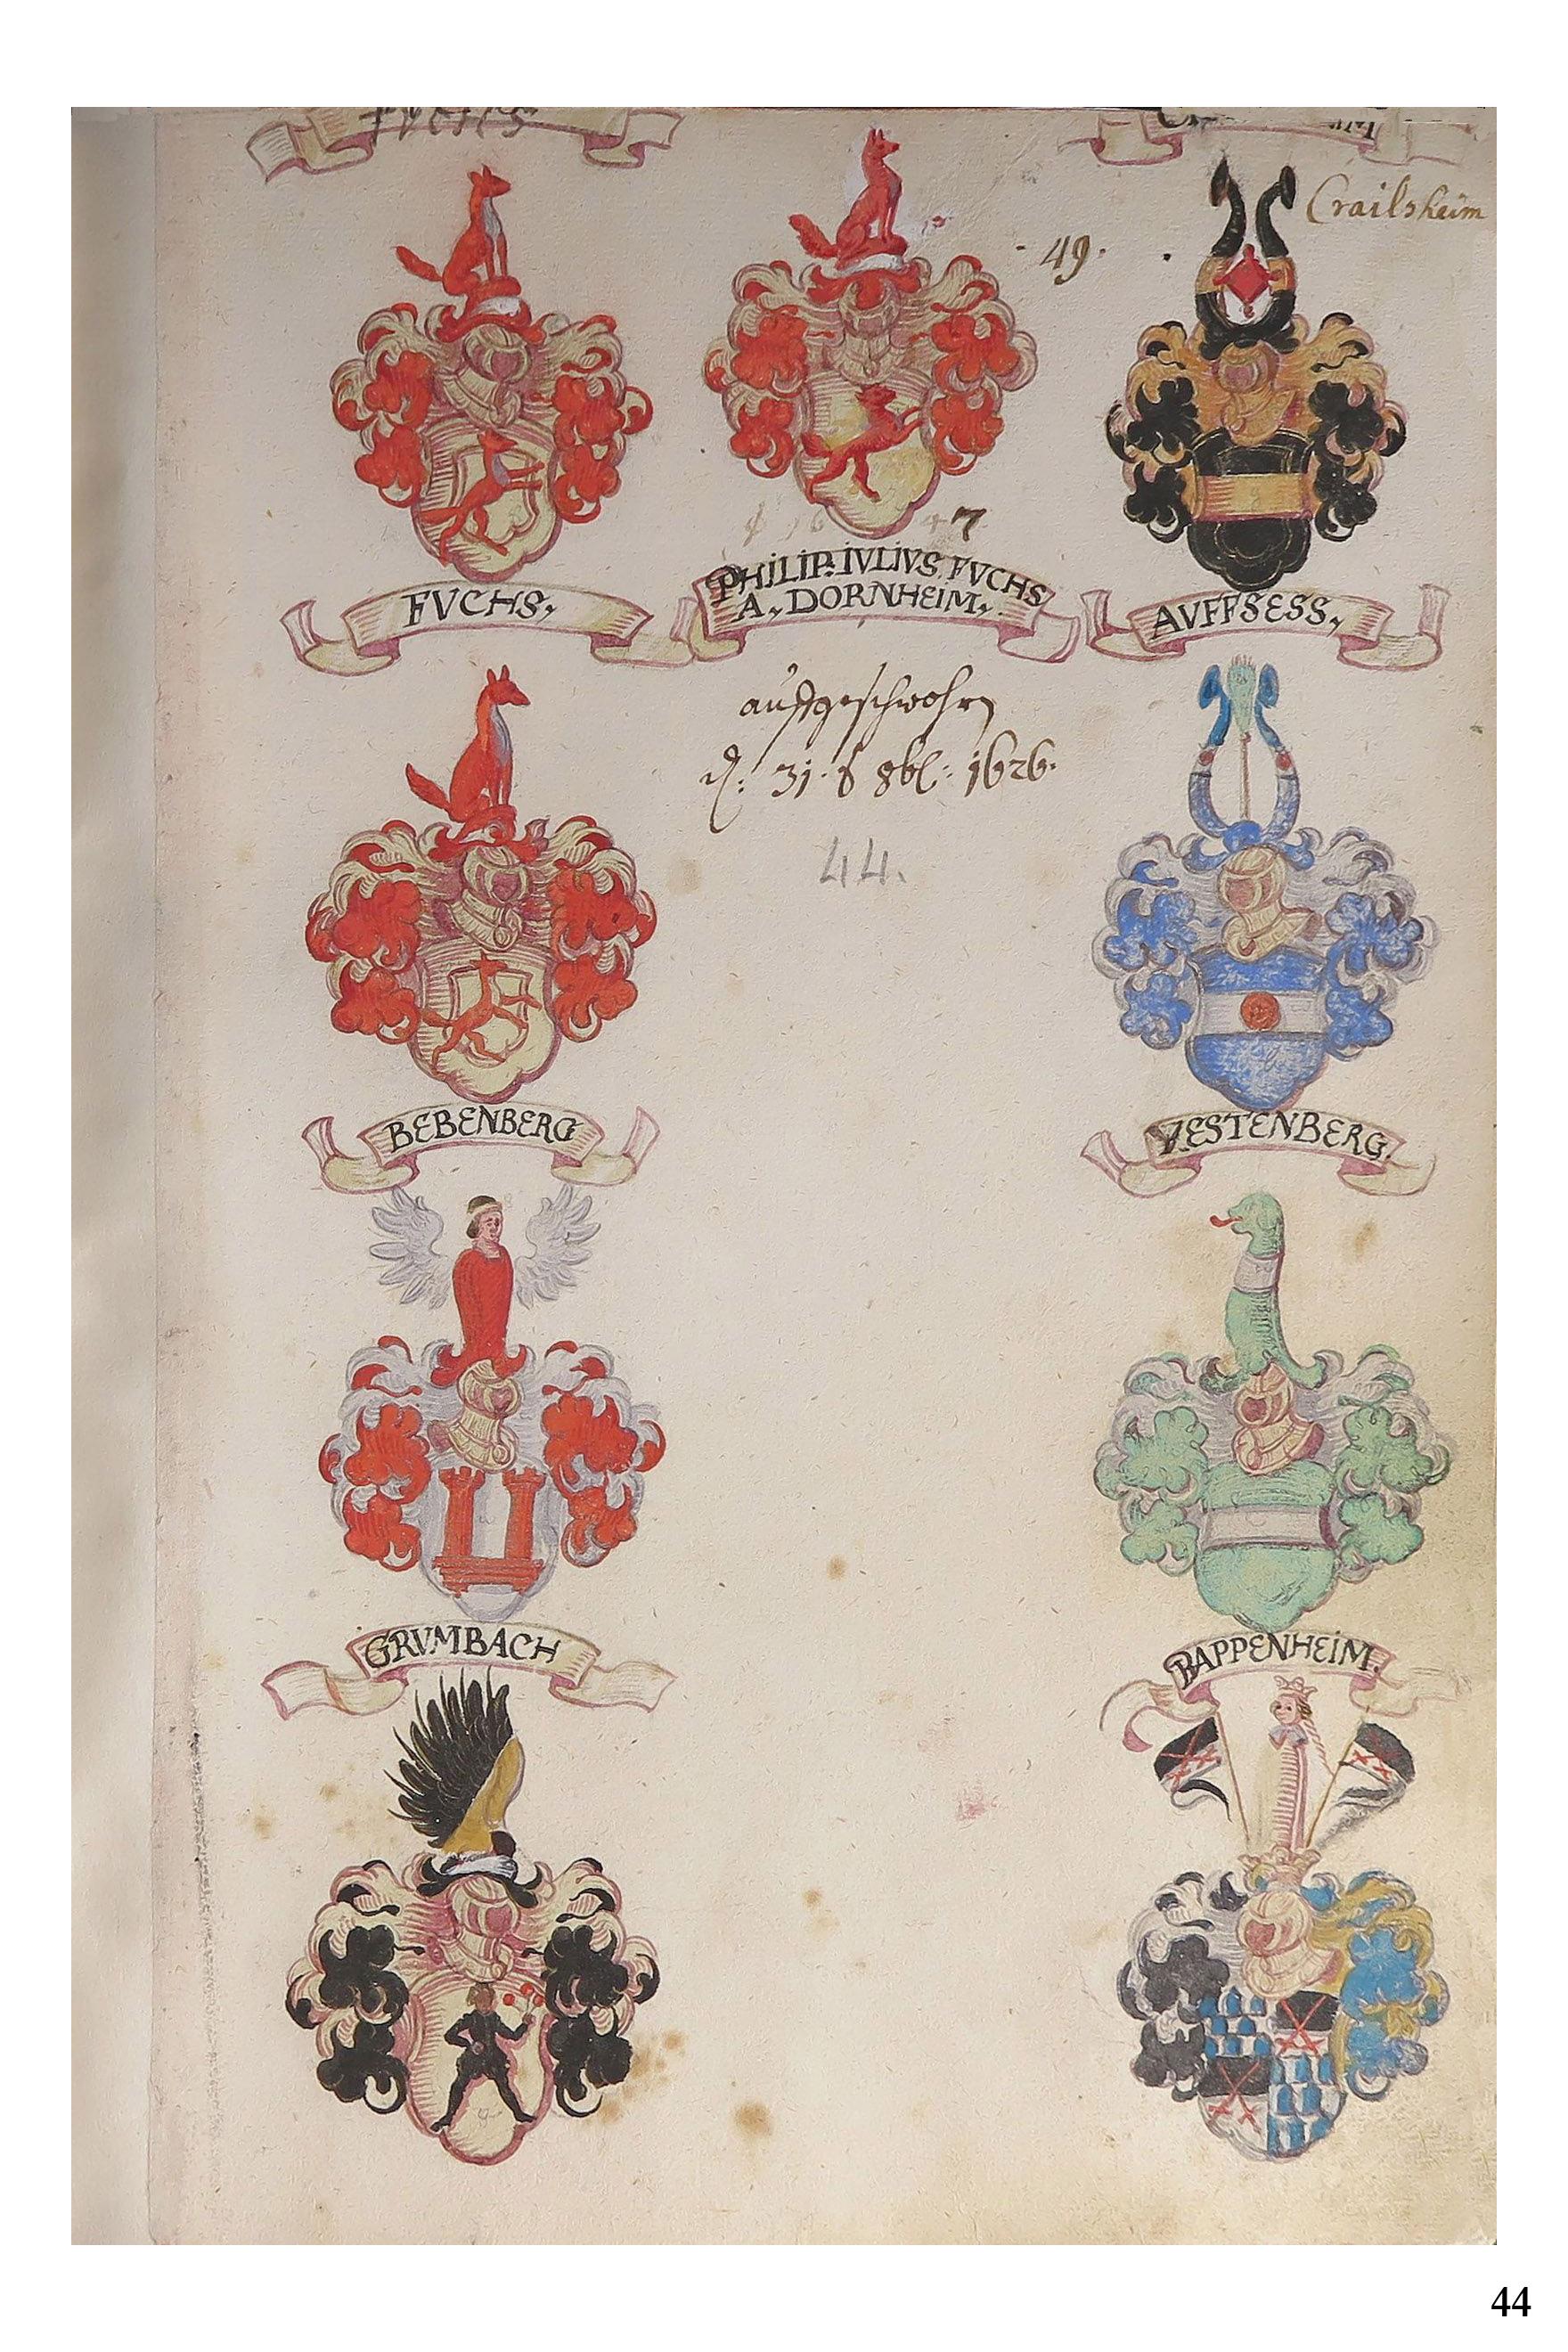 Fuchs
Crailsheim
49.
7
PHILIP: IVLIVS FVCHS
A, DORNHEIM,
FVCHS,
AVFFSESS,
auffgeschwohrn
d: 31. 8 8b: 1626.
44.
BEBENBERG
VESTENBERG.
GRVMBACH
BAPPENHEIM.
44